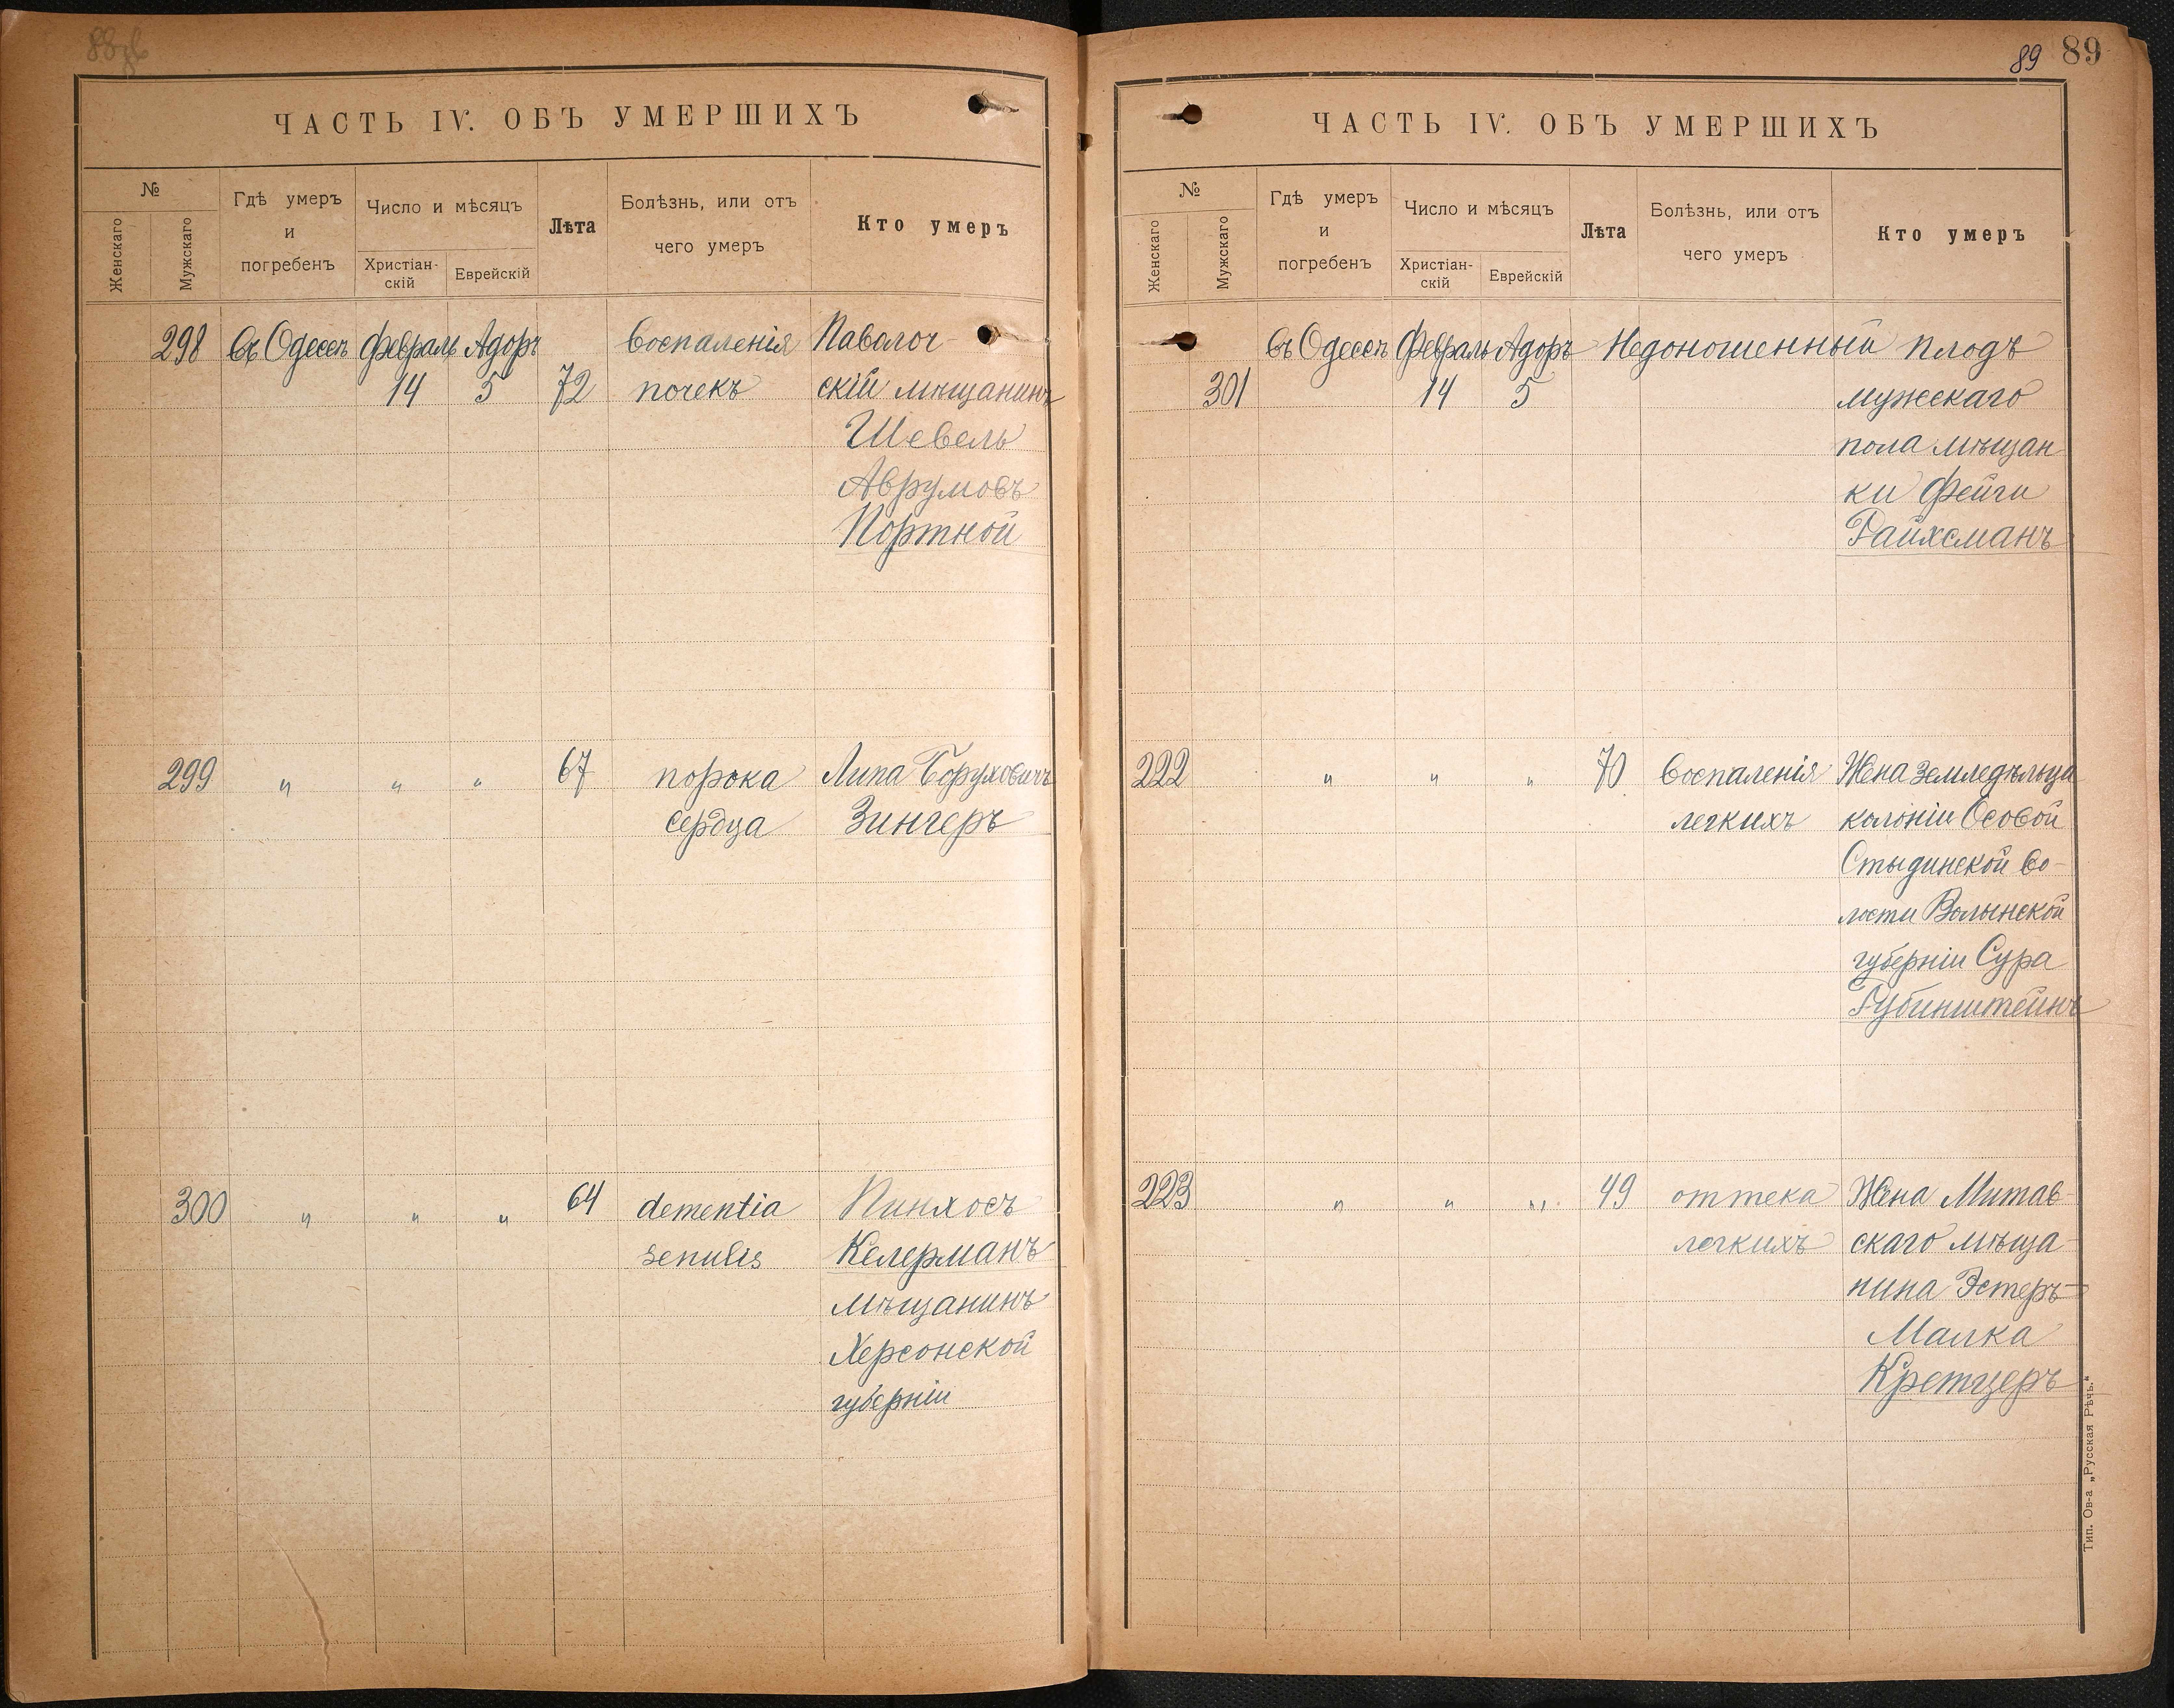 ЧАСТЬ IV. ОБЪ УМЕРШИХЪ
№
Женскаго
Мужскаго
Гдѣ умеръ
и
погребенъ
Число и мѣсяцъ
Христіан-
скій
Еврейскій
Лѣта
Болѣзнь, или отъ
чего умеръ
Кто умеръ
298 Въ Одессѣ Февраль Адоръ воспаленія Паволоч-
14 5 72 почекъ скій мѣщанинъ
Шевель
Аврумовъ
Портной
299 " " " 67 порока Липа Боруховичъ
сердца Зингеръ
300 " " " 64 dementia Пинхосъ
senilis Келерманъ
мѣщанинъ
Херсонской
губерніи
89 89
ЧАСТЬ IV. ОБЪ УМЕРШИХЪ
№
Женскаго
Мужскаго
Гдѣ умеръ
и
погребенъ
Число и мѣсяцъ
Христіан-
скій
Еврейскій
Лѣта
Болѣзнь, или отъ
чего умеръ
Кто умеръ
Въ Одессѣ Февраль Адоръ Недоношенный плодъ
301 14 5 мужескаго
пола мѣщан
ки Фейги
Райхсманъ
222 " " " 70 воспаленія Жена земледѣльца
легкихъ колоніи Особой
Стыдинской во-
лости Волынской
губерніи Сура
Рубинштейнъ
223 " " " 49 оттека Жена Митав-
легкихъ скаго мѣща-
нина Эстеръ-
Малка
Кретцеръ
Тип. Ов-а „Русская Рѣчь."